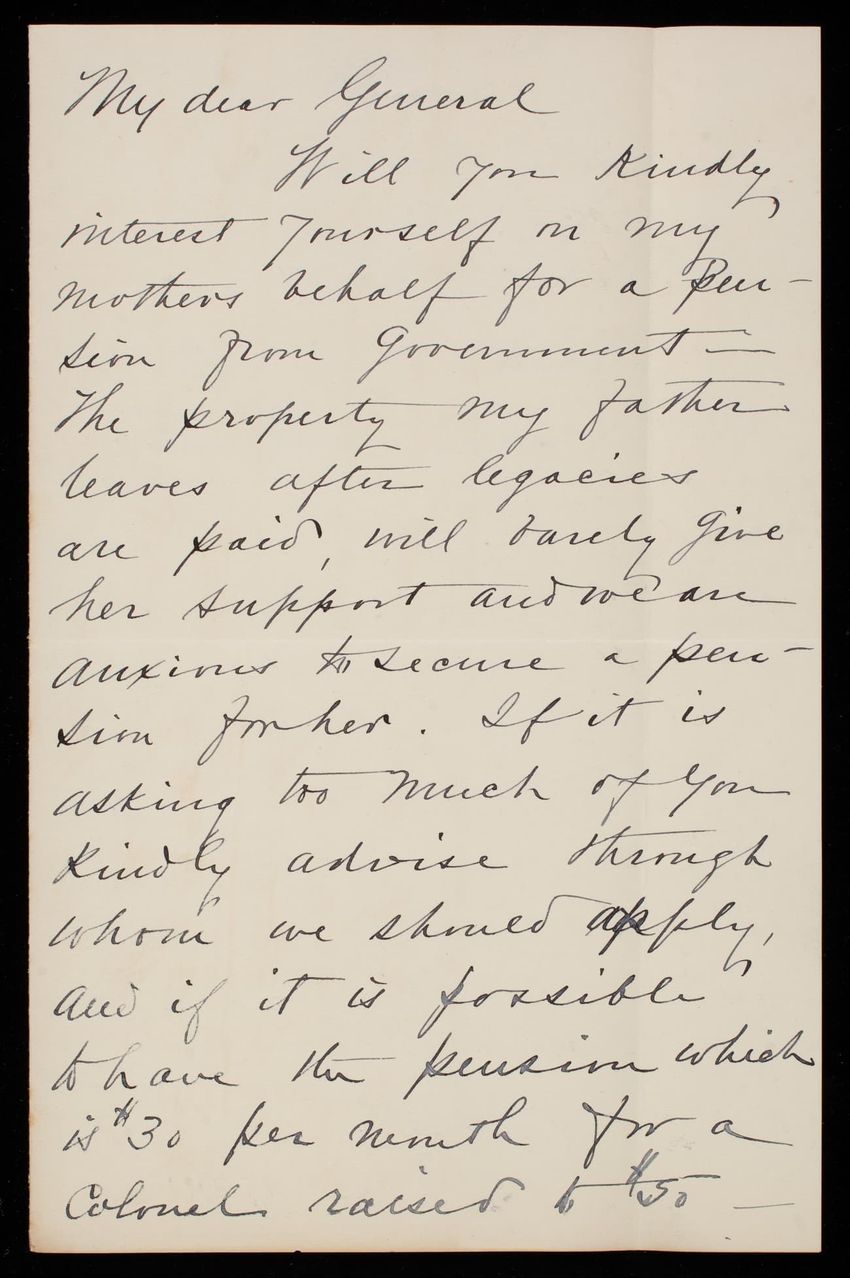 My dear General
Will you kindly
interest yourself on my
mothers behalf for a Pen-
sion from Government —
The property my father
leaves after legacies
are paid, will barely give
her support and we are
anxious to secure a pen-
sion for her. If it is
asking too much of you
kindly advise through
whom we should apply,
and if it is possible
to have the pension which
is $30 per month for a
Colonel raised to $50 —